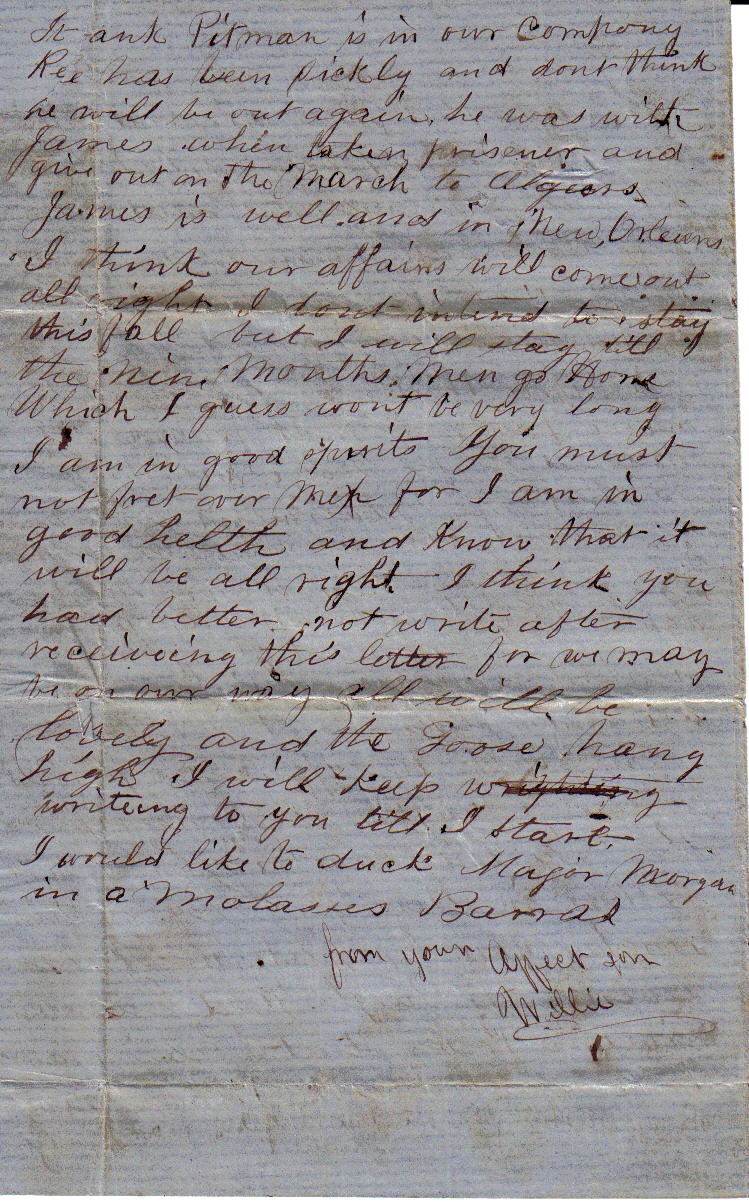 Frank Pitman is in our Company
he has been sickly and dont think
he will be out again, he was with
James when taken prisener and
give out on the March to Algiers
James is well and in New Orleans
I think our affairs will come out
all right I dont intend to stay
this fall but I will stay till
the Nine Months Men go Home
Which I guess wont be very long
I am in good spirits You must
not fret over Me for I am in
good helth and Know that it
will be all right I think you
had better not write after
receiveing this letter for we may
be on our way all will be
lovely and the Goose hang
high I will keep wrighting
writeing to you till I start.
I would like to duck Major Morgan
in a Molasses Barral
from your Affect son
Willie